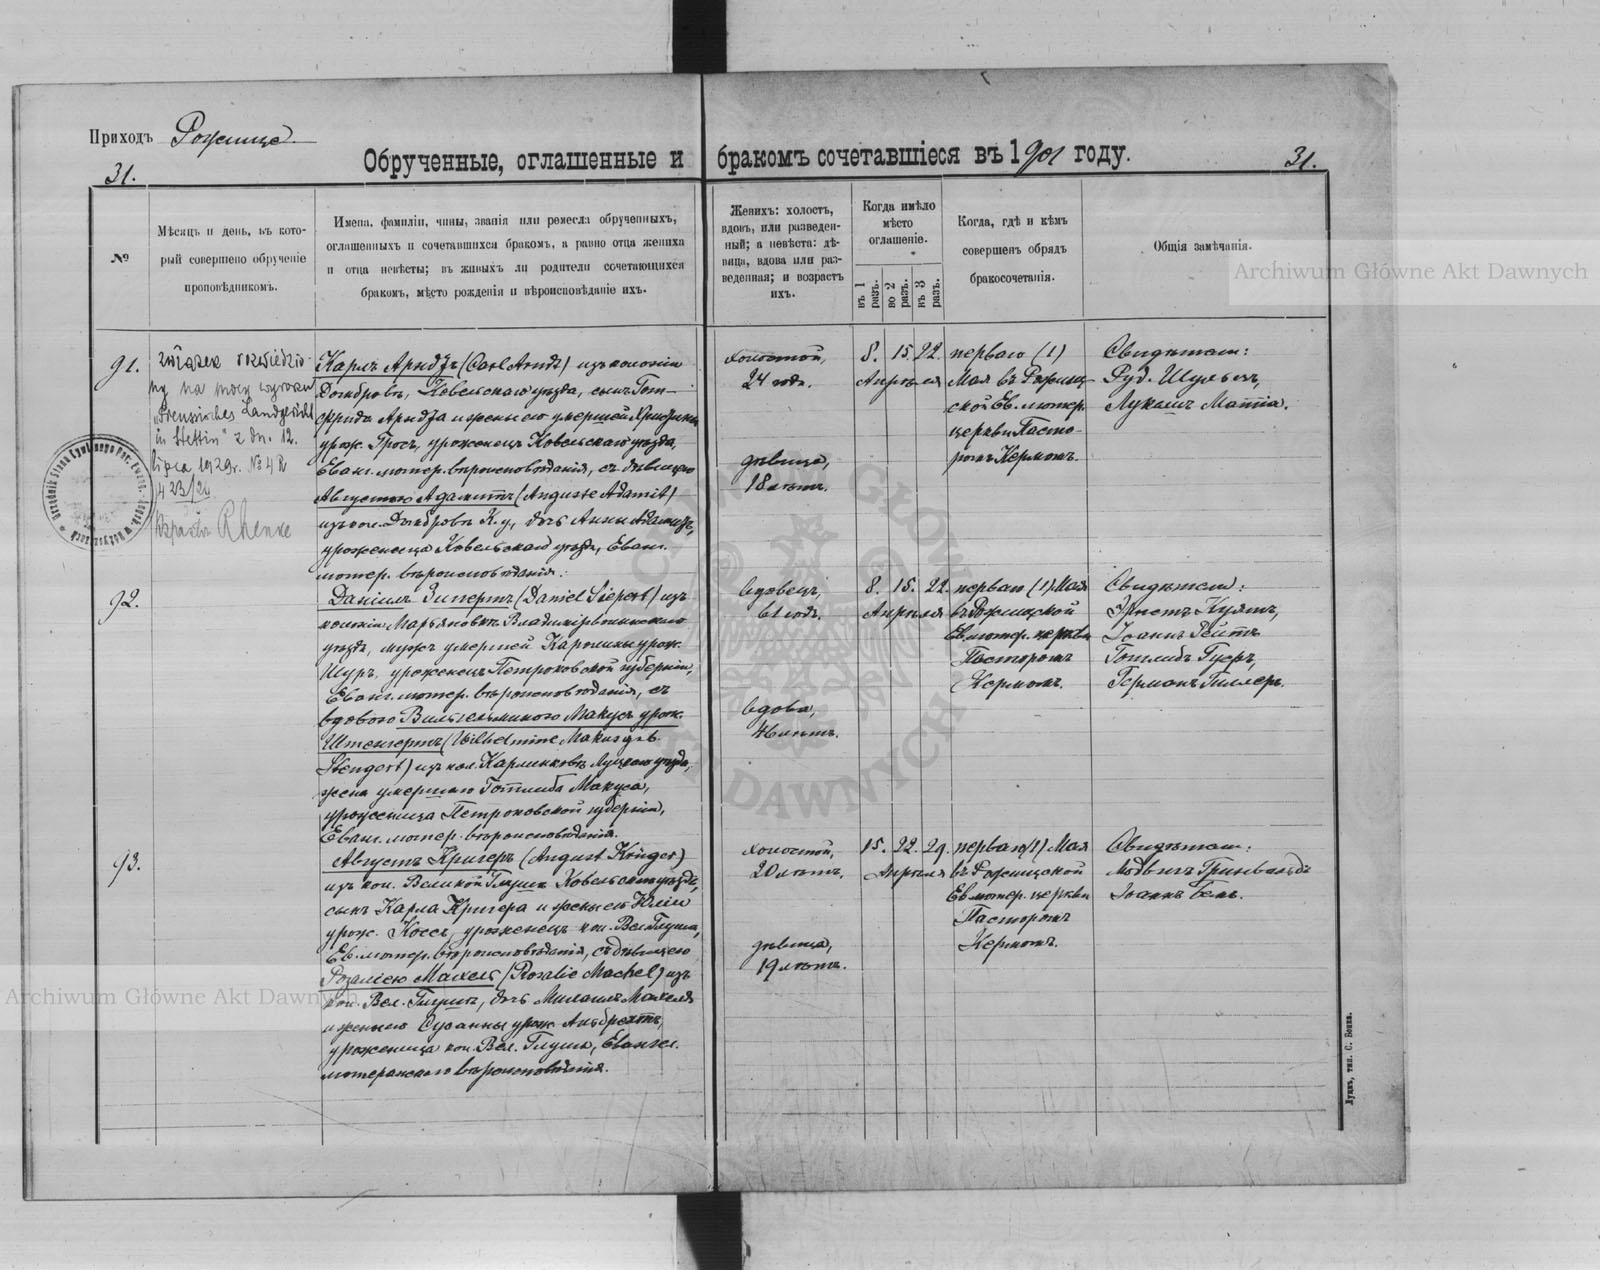 Приходъ Рожище.
31.
Обрученные, оглашенные и бракомъ сочетавшіеся въ 1901 году.
31.
№
Мѣсяцъ и день, въ кото-
рый совершено обрученіе
проповѣдникомъ.
Имена, фамиліи, чины, званія или ремесла обрученныхъ,
оглашенныхъ и сочетавшихся бракомъ, а равно отца жениха
и отца невѣсты; въ живыхъ ли родители сочетающихся
бракомъ, мѣсто рожденія и вѣроисповѣданіе ихъ.
Женихъ: холостъ,
вдовъ, или разведен-
ный; а невѣста: дѣ-
вица, вдова или раз-
веденная; и возрастъ
ихъ.
Когда имѣло
мѣсто
оглашеніе.
въ 1 разъ.
во 2 разъ.
въ 3 разъ.
Когда, гдѣ и кѣмъ
совершенъ обрядъ
бракосочетанія.
Общія замѣчанія.
Archiwum Główne Akt Dawnych
91.
związek rozwiedzio-
ny na mocy wyroku
"Preussisches Landgericht
in Stettin" z dn. 12.
lipca 1929r. № 4 R
423/29
Rhenke
Карлъ Арндтъ (Carl Arndt) изъ колоніи
Домбровъ, Ковельскаго уѣзда, сынъ Гот-
фрида Арндта и жены его умершей
урож. Гросъ, уроженецъ Ковельскаго уѣзда,
Еванг. лютер. вѣроисповѣданія, съ дѣвицею
Августою Адамитъ (Auguste Adamit)
изъ кол. Домбровъ К. у., дочь Анны Адамитъ,
уроженица Ковельскаго уѣзда, Еванг.
лютер. вѣроисповѣданія.
холостой,
24 года.
дѣвица,
18 лѣтъ.
8. 15. 22.
Апрѣля
перваго (1)
Мая въ Рожищ-
ской Ев. лютер.
церкви Пасто-
ромъ Кермомъ.
Свидѣтели:
Руд. Шульцъ,
Лукашъ Маттіа.
92.
Даніилъ Зипертъ (Daniel Siepert) изъ
колоніи Марьяновка Владиміръволынскаго
уѣзда, мужъ умершей Каролины урож.
Шуръ, уроженецъ Петроковской губерніи,
Еванг. лютер. вѣроисповѣданія, съ
вдовою Вильгельминою Макусъ урож.
Штенгертъ (Wilhelmine Makus geb.
Stengert) изъ кол. Карлинковъ Луцкаго уѣзда,
жена умершаго Готлиба Макуса,
уроженица Петроковской губерніи,
Еванг. лютер. вѣроисповѣданія.
вдовецъ,
61 годъ.
вдова,
46 лѣтъ.
8. 15. 22.
Апрѣля
перваго (1) Мая
въ Рожищской
Ев. лютер. церкви
Пасторомъ
Кермомъ.
Свидѣтели:
Эрнстъ Куятъ,
Іоаннъ Рейтъ
Готлибъ Гусръ,
Германъ Гиллеръ.
93.
Августъ Кригеръ (August Krüger)
изъ кол. Великой Глуши Ковельскаго уѣзда,
сынъ Карла Кригера и жены его Юліи
урож. Коссъ, уроженецъ кол. Вел. Глуша,
Ев. лютер. вѣроисповѣданія, съ дѣвицею
Розаліею Махель (Rosalie Machel) изъ
кол. Вел. Глуши, дочь Михаила Махеля
и жены его Сусанны урож. Альбрехтъ,
уроженица кол. Вел. Глуша, Евангел.
лютеранскаго вѣроисповѣданія.
холостой,
20 лѣтъ.
дѣвица,
19 лѣтъ.
15. 22. 29.
Апрѣля
перваго (1) Мая
въ Рожищской
Ев. лютер. церкви
Пасторомъ
Кермомъ.
Свидѣтели:
Лодвигъ Гринвальдъ
Іоаннъ Бемъ.
Archiwum Główne Akt Dawnych
Луцкъ, тип. С. Бонка.